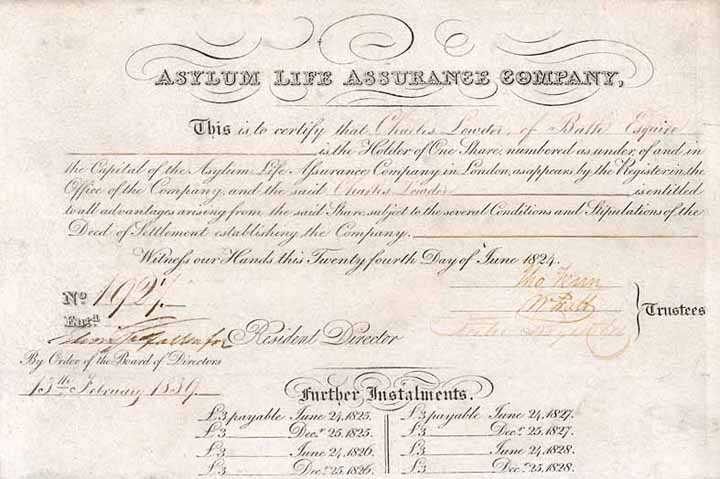 ASYLUM LIFE ASSURANCE COMPANY,
This is to certify that Charles Lowder, of Bath Esquire
is the Holder of One Share, numbered as under, of and in
the Capital of the Asylum Life Assurance Company in London, as appears by the Register in the
Office of the Company, and the said Charles Lowder is entitled
to all advantages arising from the said Share, subject to the several Conditions and Stipulations of the
Deed of Settlement establishing the Company.
Witness our Hands this Twenty fourth Day of June 1824.
No. 1927
Tho Fenn
Wm Pratt
Trustees
Entd.
Resident Director
By Order of the Board of Directors
13th February 1839
Further Instalments.
£3 payable June 24, 1825. £3 payable June 24, 1827.
£3 Decr. 25, 1825. £3 Decr. 25, 1827.
£3 June 24, 1826. £3 June 24, 1828.
£3 Decr. 25, 1826. £3 Decr. 25, 1828.